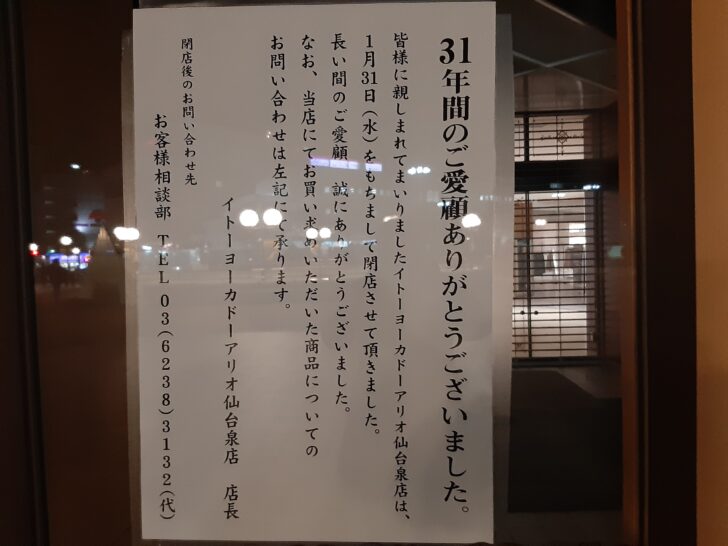 31年間のご愛顧ありがとうございました。
皆様に親しまれてまいりましたイトーヨーカドーアリオ仙台泉店は、
1月31日（水）をもちまして閉店させて頂きました。
長い間のご愛顧 誠にありがとうございました。
なお、当店にてお買い求めいただいた商品についての
お問い合わせは左記にて承ります。
イトーヨーカドーアリオ仙台泉店 店長
閉店後のお問い合わせ先
お客様相談部 TEL 03(6238)3132(代)